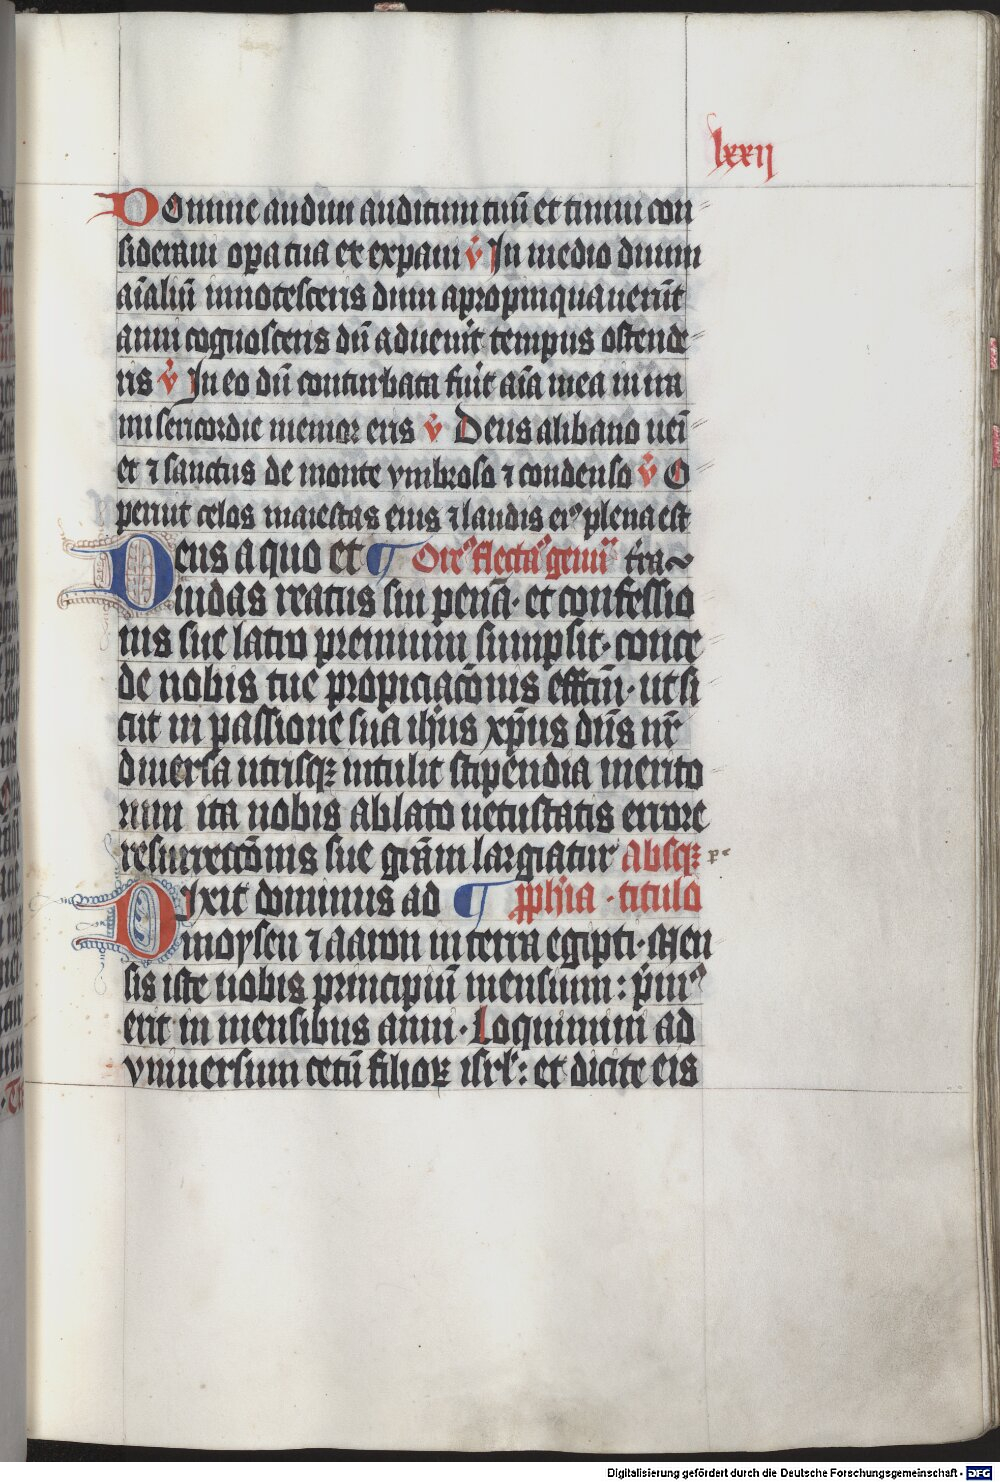 lxxij
Domine audiui auditum tuū et timui con
sideraui opa tua et expaui v̄ In medio duum
aīaliū innotesceris dum apropinquauerūt
anni cognosceris dū aduenīt tempus ostende
ris v̄ In eo dū conturbata fuīt aīa mea in ira
misericordie memor eris v̄ Deus alibano ueī
et ⁊ sanctus de monte vmbroso ⁊ condenso v̄ O
peruit celos maiestas eius ⁊ laudis eiꝰ plena est
Deus a quo et ¶ Orēꝰ flectaꝰ genuā tīra
iudas reatus sui penā· et confessio
nis sue latro premium sumpsit· conce
de nobis tue propiciacōnis effctm̄· ut si
cut in passione sua ihūs xp̄us dn̄s nr̄
diuersa utrisqꝫ intulit stipendia merito
rum ita nobis ablato uetustatis errore
resurrectōnis sue grām largiatur absqꝫ
Dixit dominus ad ¶ pphīa · titulo
moysen ⁊ aaron in terra egipti· Men
sis iste uobis principiū mensium : pm̄ꝰ
erit in mensibus anni· Loquimini ad
vniuersum cetū filioꝝ isrl̄ : et dicite eis
Digitalisierung gefördert durch die Deutsche Forschungsgemeinschaft - DFG